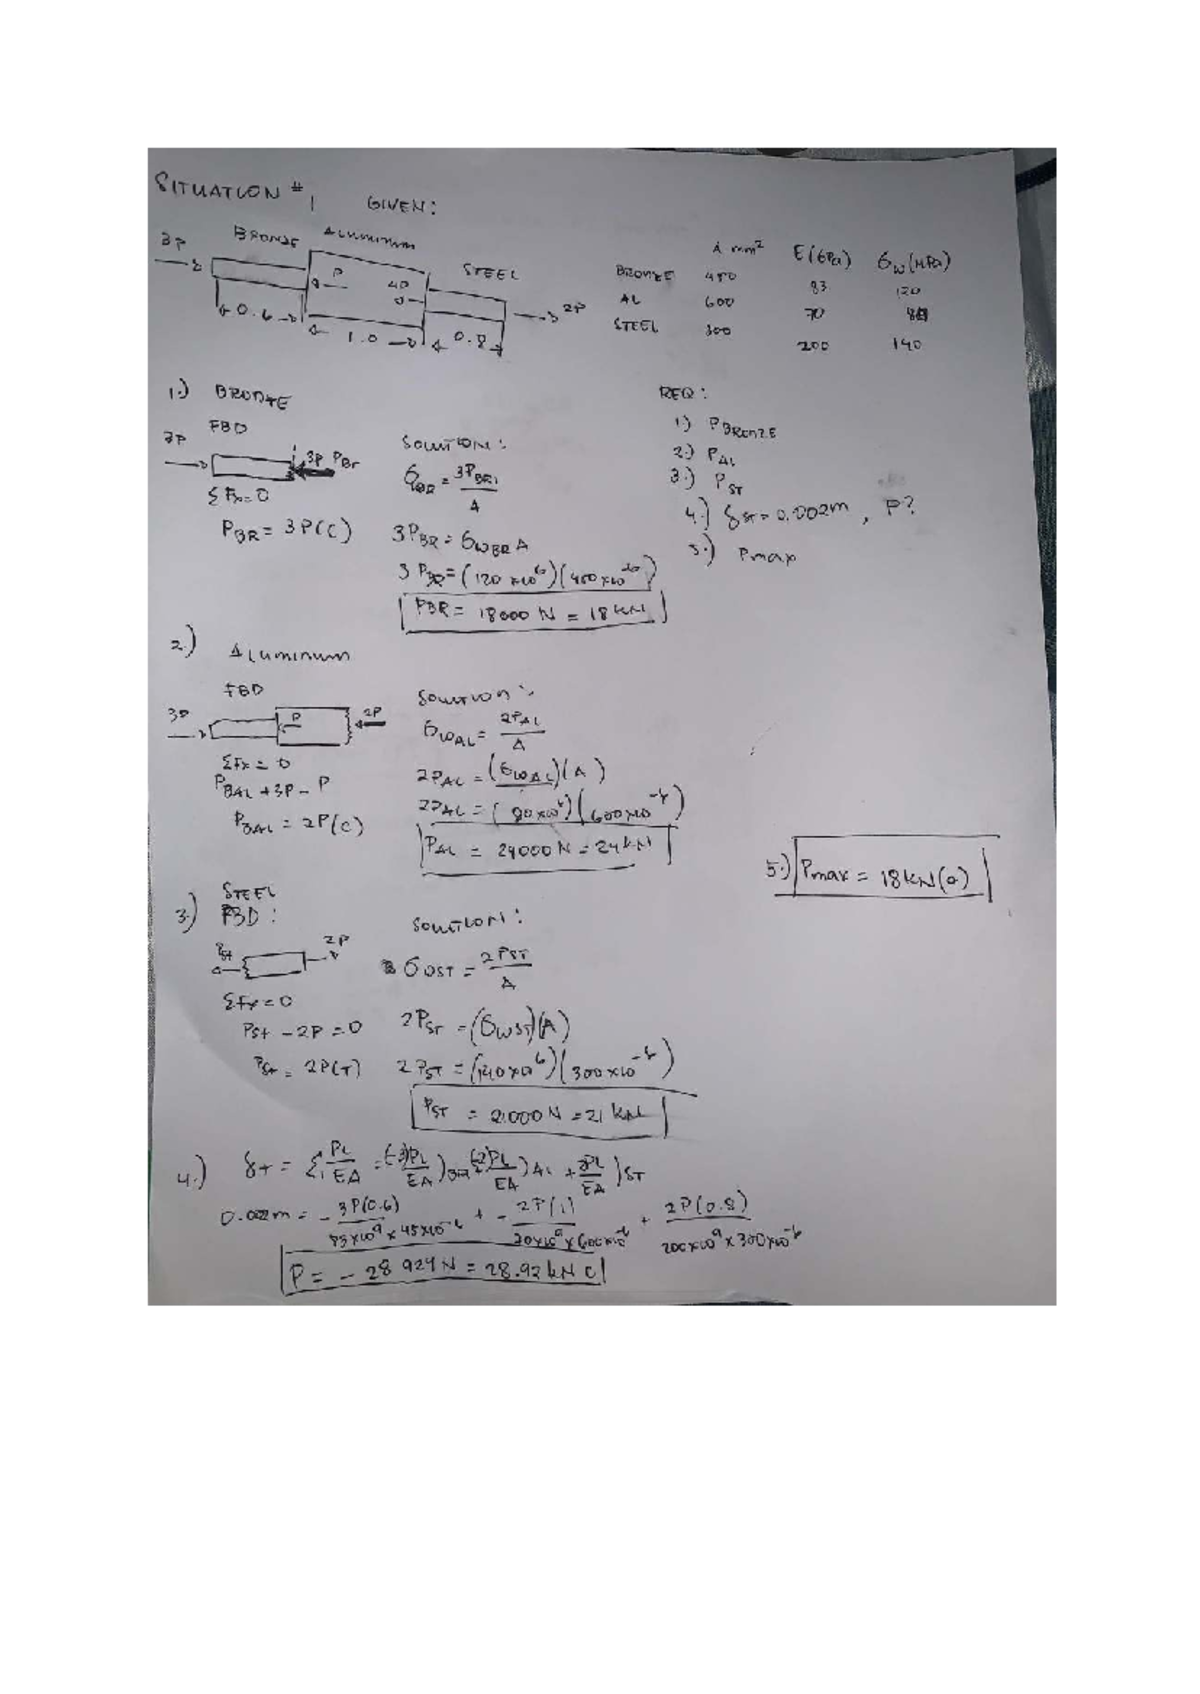 SITUATION # 1 GIVEN:
3P BRONZE ALUMINUM STEEL
P 4P 2P
0.6 1.0 0.8
A mm² E (GPa) σw (MPa)
BRONZE 450 83 120
AL 600 70 80
STEEL 300 200 140
REQ:
1.) PBRONZE
2.) PAL
3.) PST
4.) δST = 0.002m, P?
5.) Pmax
1.) BRONZE
FBD
3P 3P PBr
ΣFx = 0
PBR = 3P(C)
SOLUTION:
σBR = 3PBR / A
3PBR = σWBR A
3PBR = (120 x10⁶)(450x10⁻⁶)
PBR = 18000 N = 18 KN
2.) Aluminum
FBD
3P P 2P
ΣFx = 0
PBAL + 3P - P
PBAL = 2P(C)
SOLUTION:
σWAL = 2PAL / A
2PAL = (σWAL)(A)
2PAL = (80x10⁶)(600x10⁻⁶)
PAL = 24000 N = 24 KN
3.) STEEL
FBD:
Pst 2P
ΣFx = 0
Pst - 2P = 0
Pst = 2P(T)
SOLUTION:
σWST = 2PST / A
2PST = (σWST)(A)
2PST = (140x10⁶)(300x10⁻⁶)
PST = 21000 N = 21 KN
4.) δT = Σ PL/EA = (-3)PL/EA)BR + (-2)PL/EA)AL + 2PL/EA)ST
0.002m = - 3P(0.6) / 83x10⁹ x 45x10⁻⁶ + - 2P(1) / 70x10⁹ x 600x10⁻⁶ + 2P(0.8) / 200x10⁹ x 300x10⁻⁶
P = - 28 924 N = 28.92 kN C
5.) Pmax = 18 KN